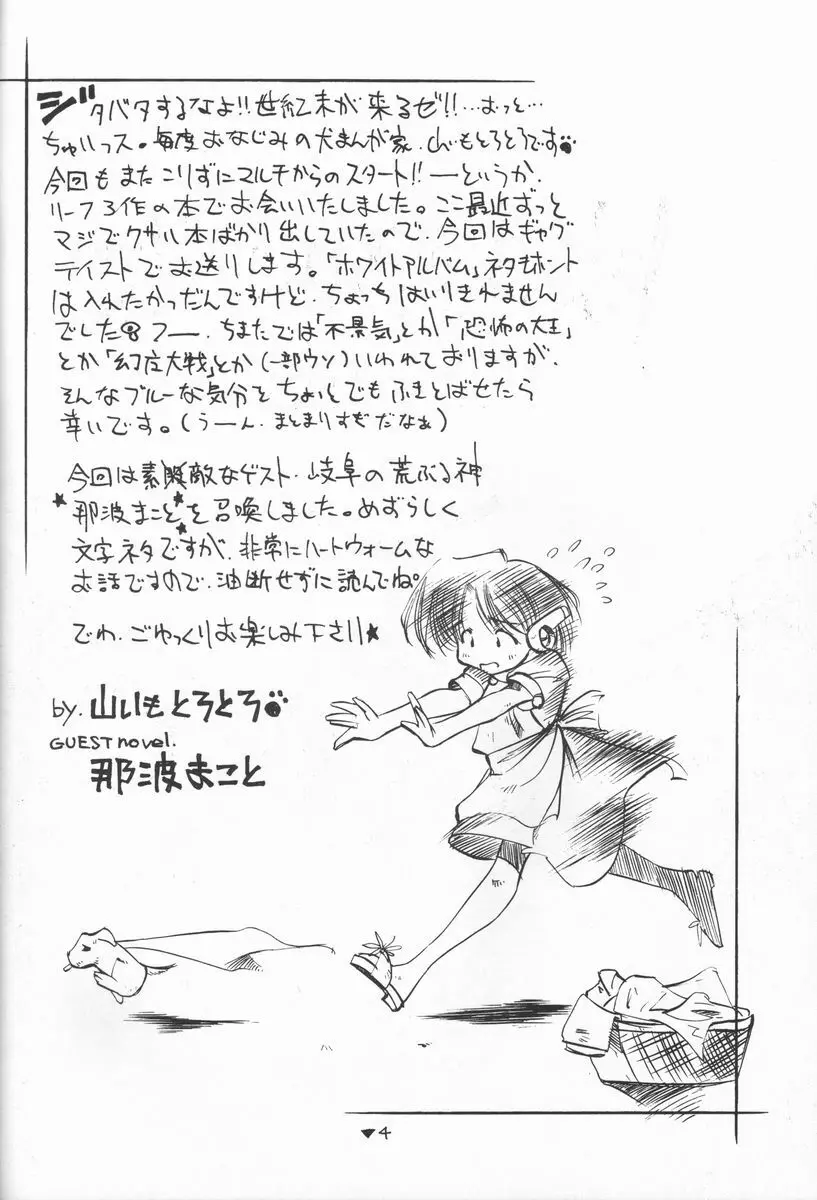 ジタバタするなよ!!世紀末が来るゼ!!…おっと…
ちゅいっス。毎度おなじみの犬まんが家、山いもとろとろです
今回もまたこりずにマルチからのスタート!!―というか、
リーフ3作の本でお会いいたしました。ここ最近ずっと
マジでクサい本ばかり出していたので、今回はギャグ
テイストでお送りします。「ホワイトアルバム」ネタもホント
は入れたかっだんですけど、ちょっちはいりきれません
でした フー、ちまたでは「不景気」とか「恐怖の大王」
とか「幻庄大戦」とか(一部ウソ)いわれておりますが、
そんなブルーな気分をちょいとでもふきとばせたら
幸いです。(うーん、まとまりすぎだなぁ)
今回は素敵なゲスト・岐阜の荒ぶる神
★那波まこと★を召喚しました。めずらしく
文字ネタですが、非常にハートウォームな
お話ですので、油断せずに読んでね。
でわ、ごゆっくりお楽しみ下さい★
by.山いもとろとろ
GUEST novel.
那波まこと
▼4